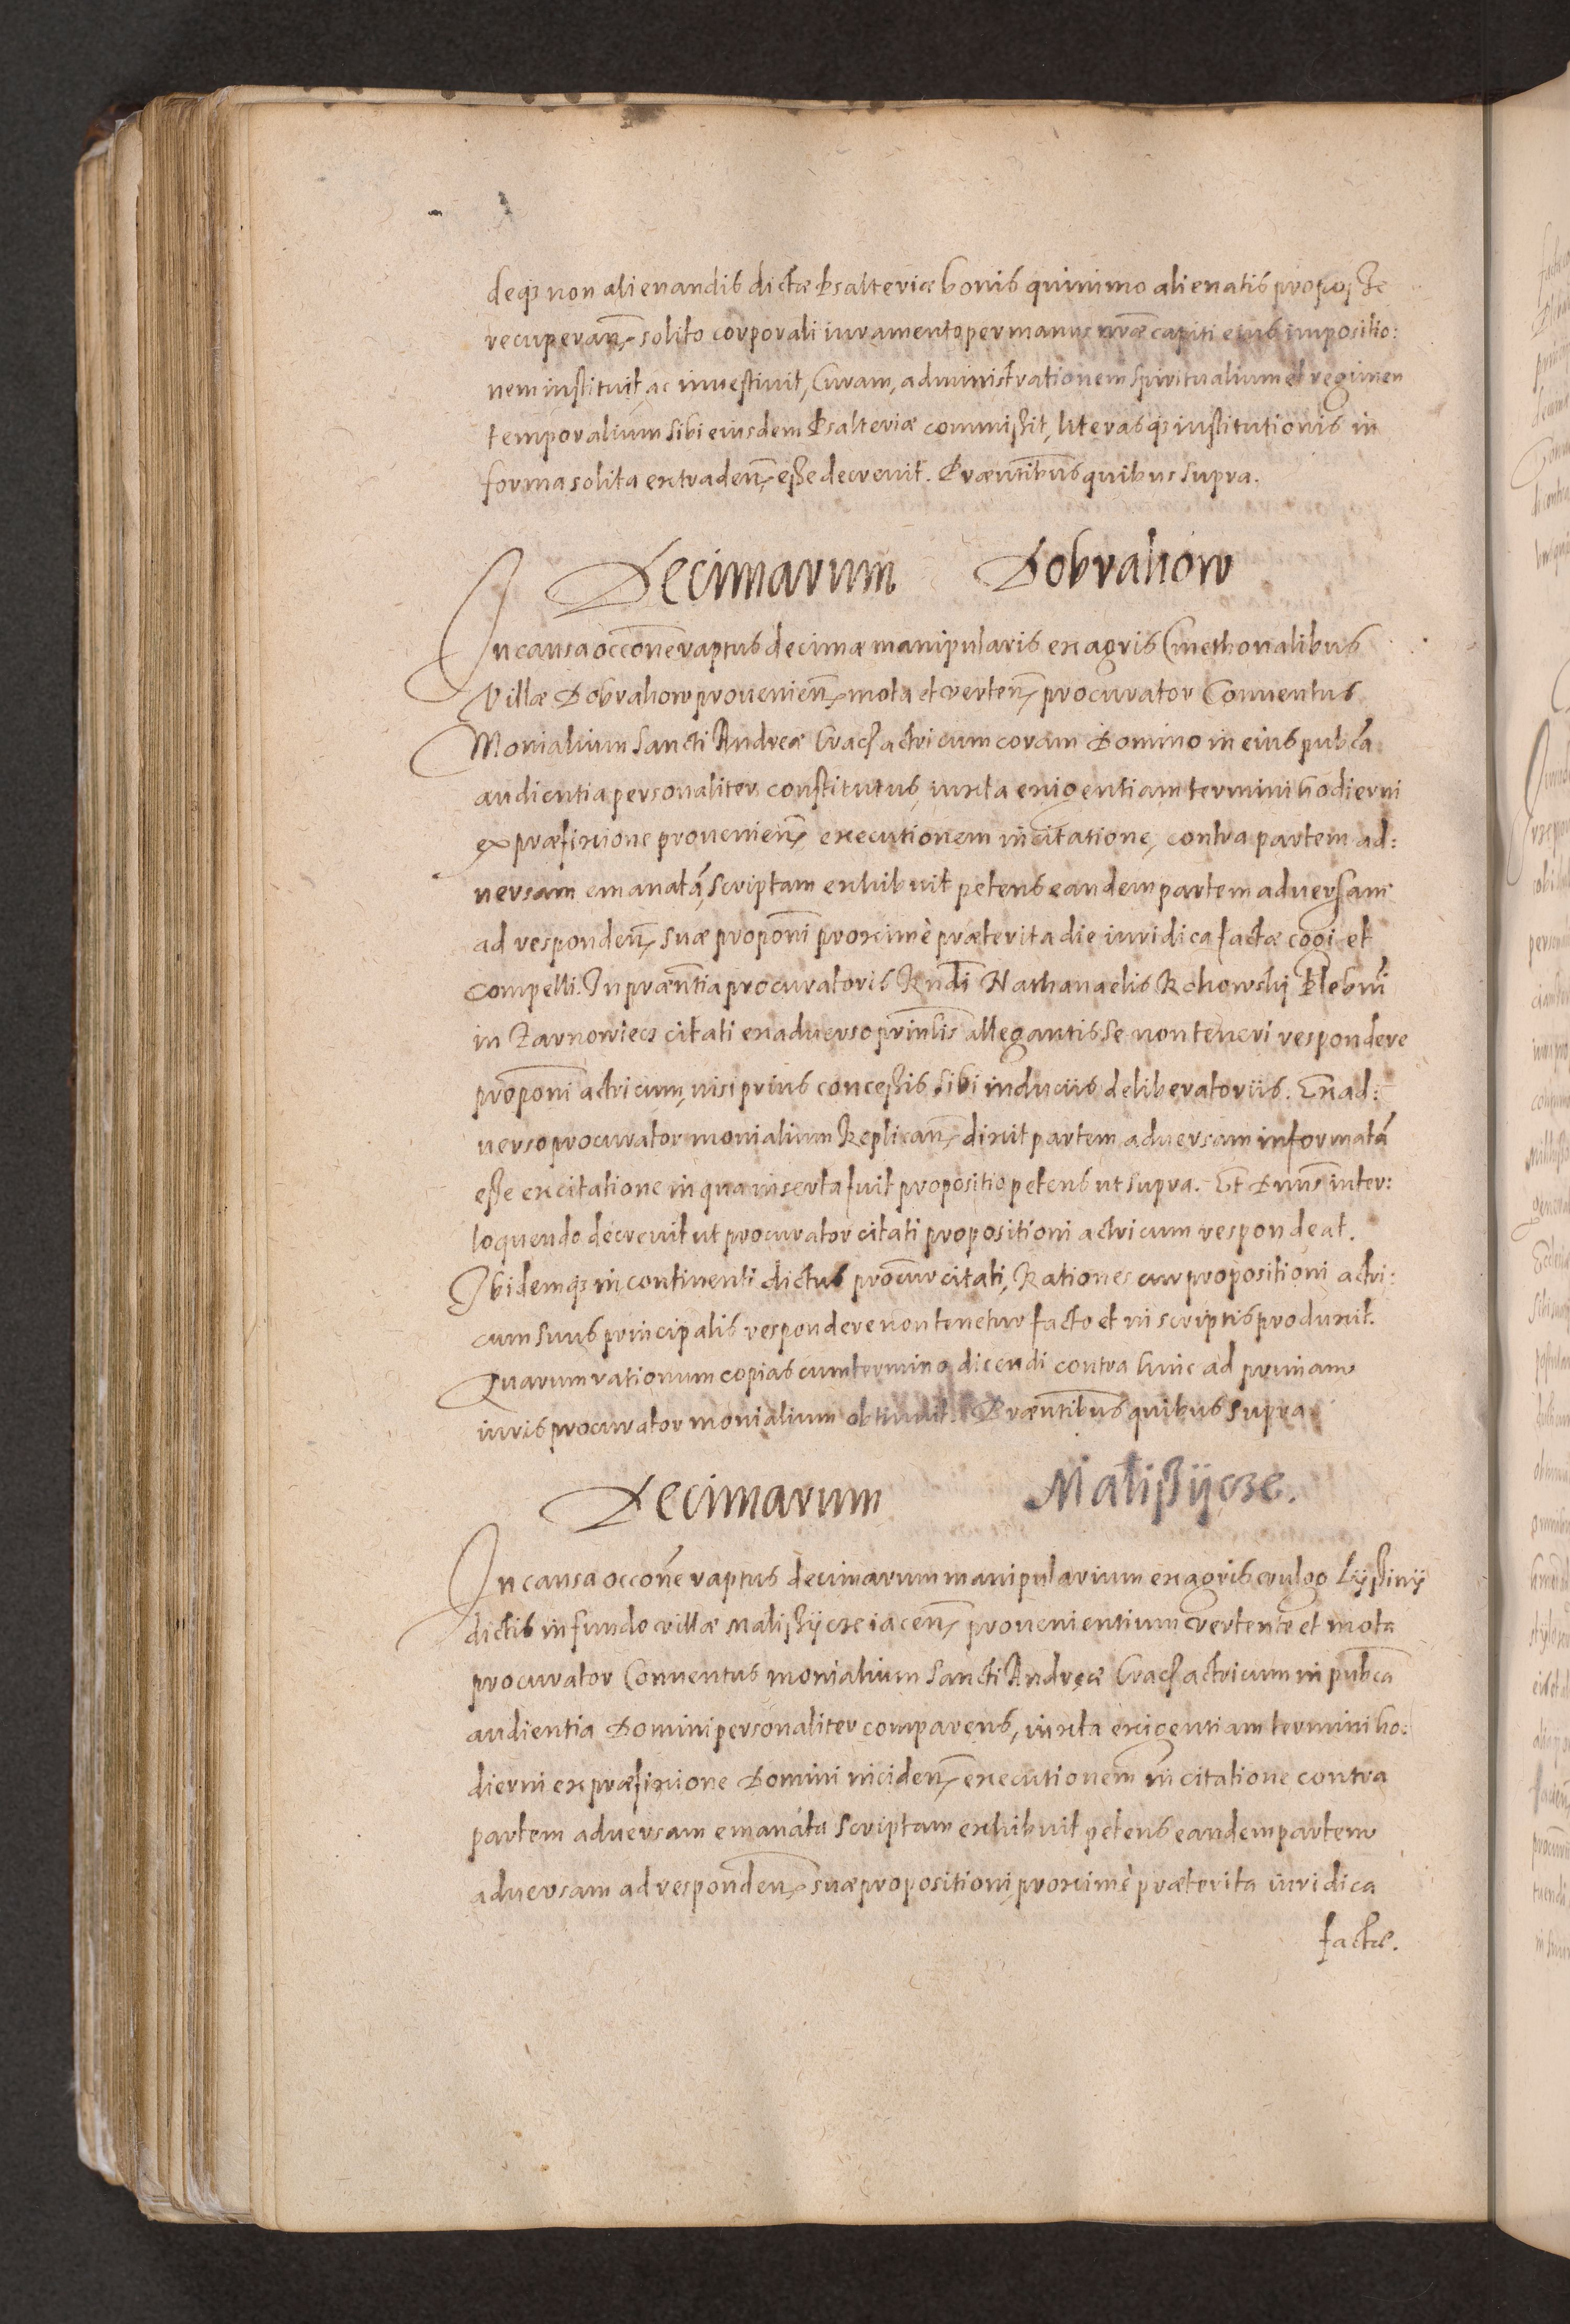 deq́ꝫ non alienandis dictæ Psalteriæ bonis quinimo alienatis pro posse
recuperan̄. solito corporali iuramento per manus nrāe capiti eius impositio:
nem instituit ac investiuit, Curam, administrationem spiritualium et regimen
temporalium sibi eiusdem Psalteriæ commissit, literasq́ꝫ institutionis in
forma solita extraden̄. esse decrevit. Præntibus quibus supra.
Decimarum Dobrakow
In causa occōne raptus decimæ manipularis ex agris Cmethonalibus
Villæ Dobrakow prouenien̄. mota et verten̄. procurator Conventus
Monialium Sancti Andreæ Crac͡ȝ actricum coram Domino in eius pubca
audientia personaliter constitutus, iuxta exigentiam termini hodierni
ex præfixione prouenien̄. executionem in citatione, contra partem ad:
uersam emanatā, scriptam exhibuit petens eandem partem adversam
ad responden̄. suæ propōni proximè præterita die iuridica factæ cogi et
compelli. In præntia procuratoris Rndi Nathanaelis Rohowskj Plebni
in Zarnowiecz citati ex adverso prinlis allegantis se non teneri respondere
propōni actricum, nisi prius concessis sibi induciis deliberatoriis. Ex ad:
uerso procurator monialium Replican̄. dixit partem adversam informatā
esse ex citatione in qua inserta fuit propositio petens ut supra. Et Dnus inter:
loquendo decrevit ut procurator citati propositioni actricum respondeat.
Ibidemq́ꝫ in continenti dictus procur citati, Rationes cur propositioni actri:
cum suus principalis respondere non tenetur facto et in scriptis produxit.
Quarum rationum copias cum termino dicendi contra hinc ad primam
iuris procurator monialium obtinuit. Præntibus quibus supra
Decimarum Malissÿcze.
In causa occōne raptus decimarum manipularium ex agris vulgo Lÿssinÿ
dictis in fundo villæ Malissÿcze iacen̄. provenientium vertente et mota
procurator Conventus monialium Sancti Andreæ Crac͡ȝ actricum in pubca
audientia Domini personaliter comparens, iuxta exigentiam termini ho:
dierni ex præfixione Domini inciden̄. executionem in citatione contra
partem adversam emanáta scriptam exhibuit petens eandem partem
adversam ad responden̄. suæ propositioni proximè præterita iuridica
factæ.